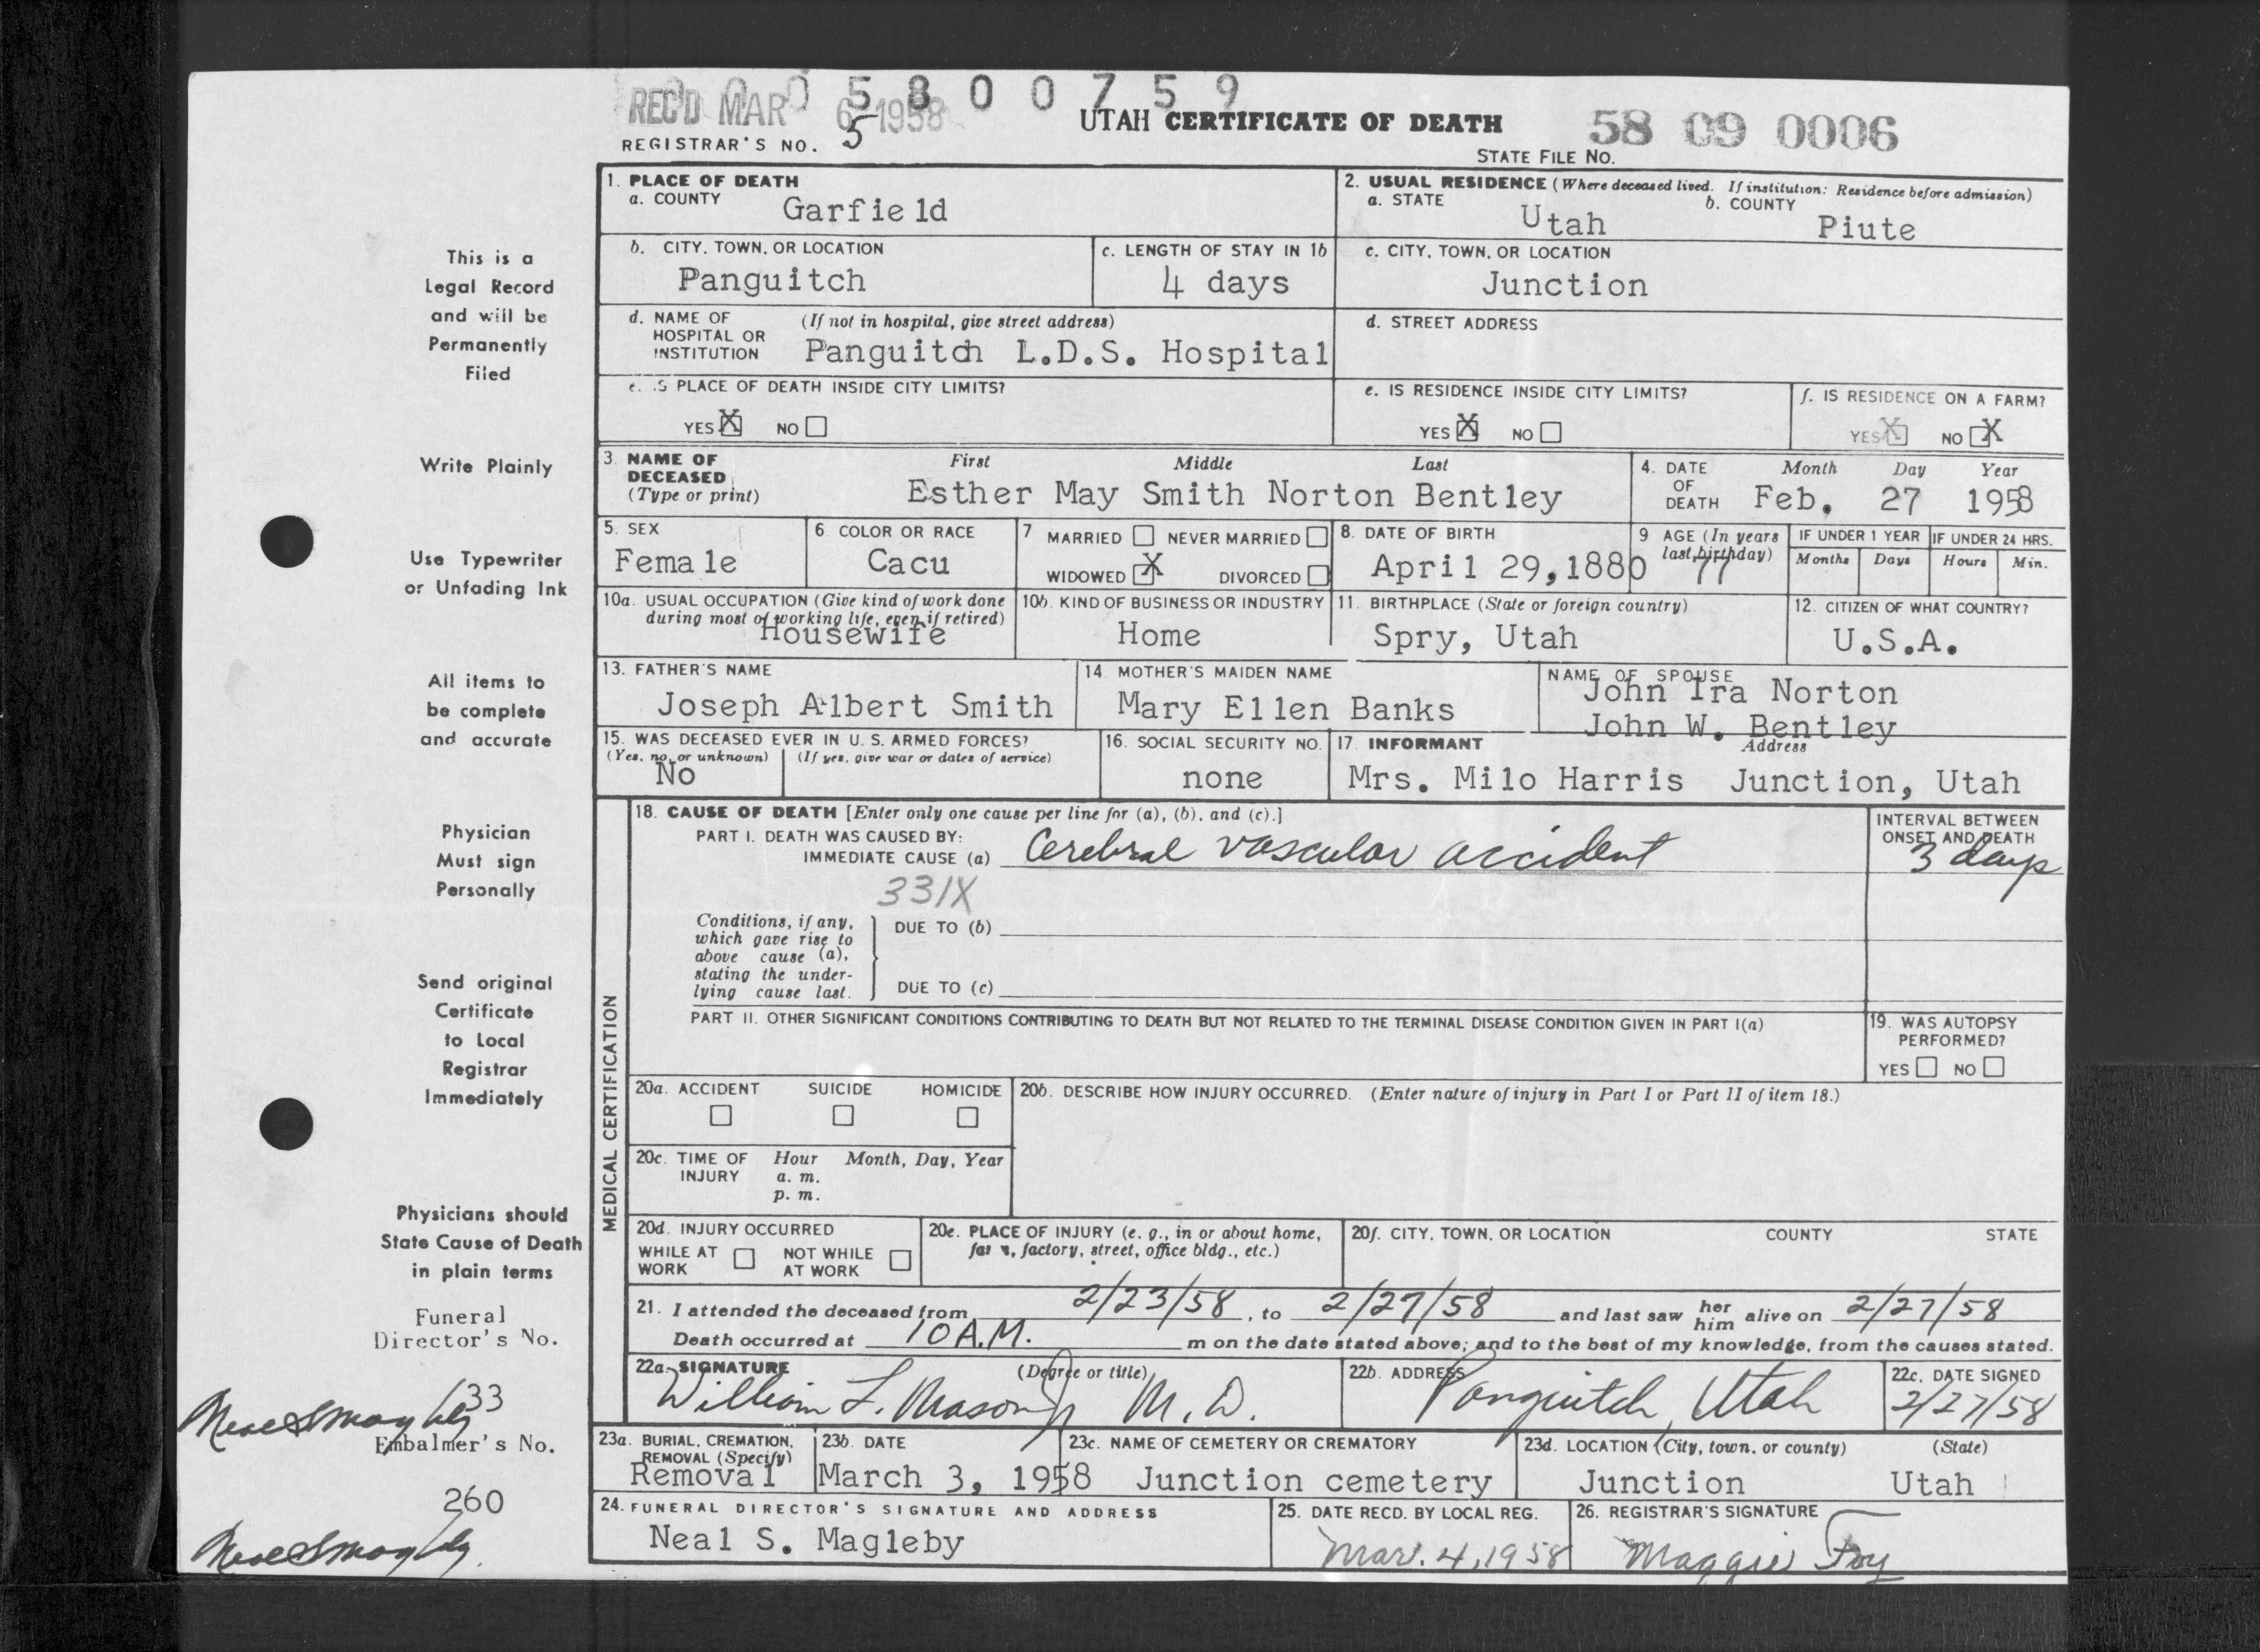 REC'D MAR 6 1958
0 0 0 5 8 0 0 7 5 9
UTAH CERTIFICATE OF DEATH
58 09 0006
REGISTRAR'S NO. 5
STATE FILE NO.
This is a
Legal Record
and will be
Permanently
Filed
Write Plainly
Use Typewriter
or Unfading Ink
All items to
be complete
and accurate
Physician
Must sign
Personally
Send original
Certificate
to Local
Registrar
Immediately
Physicians should
State Cause of Death
in plain terms
Funeral
Director's No.
133
Neal S Magleby
Embalmer's No.
260
Neal S Magleby
1. PLACE OF DEATH
a. COUNTY Garfield
2. USUAL RESIDENCE (Where deceased lived. If institution: Residence before admission)
a. STATE Utah b. COUNTY Piute
b. CITY, TOWN, OR LOCATION Panguitch
c. LENGTH OF STAY IN 1b 4 days
c. CITY, TOWN, OR LOCATION Junction
d. NAME OF HOSPITAL OR INSTITUTION (If not in hospital, give street address)
Panguitch L.D.S. Hospital
d. STREET ADDRESS
e. IS PLACE OF DEATH INSIDE CITY LIMITS?
YES X NO
e. IS RESIDENCE INSIDE CITY LIMITS?
YES X NO
f. IS RESIDENCE ON A FARM?
YES X NO X
3. NAME OF DECEASED (Type or print) First Middle Last
Esther May Smith Norton Bentley
4. DATE OF DEATH Month Day Year
Feb. 27 1958
5. SEX Female
6 COLOR OR RACE Cacu
7 MARRIED NEVER MARRIED
WIDOWED X DIVORCED
8. DATE OF BIRTH April 29,1880
9 AGE (In years last birthday) 77
IF UNDER 1 YEAR Months Days
IF UNDER 24 HRS. Hours Min.
10a. USUAL OCCUPATION (Give kind of work done during most of working life, even if retired)
Housewife
10b. KIND OF BUSINESS OR INDUSTRY Home
11. BIRTHPLACE (State or foreign country) Spry, Utah
12. CITIZEN OF WHAT COUNTRY? U.S.A.
13. FATHER'S NAME Joseph Albert Smith
14. MOTHER'S MAIDEN NAME Mary Ellen Banks
NAME OF SPOUSE
John Ira Norton
John W. Bentley
15. WAS DECEASED EVER IN U. S. ARMED FORCES?
(Yes, no, or unknown) (If yes, give war or dates of service)
No
16. SOCIAL SECURITY NO. none
17. INFORMANT Address
Mrs. Milo Harris Junction, Utah
MEDICAL CERTIFICATION
18. CAUSE OF DEATH [Enter only one cause per line for (a), (b), and (c).]
PART I. DEATH WAS CAUSED BY:
IMMEDIATE CAUSE (a) Cerebral vascular accident
INTERVAL BETWEEN ONSET AND DEATH
3 days
331X
Conditions, if any, which gave rise to above cause (a), stating the underlying cause last.
DUE TO (b)
DUE TO (c)
PART II. OTHER SIGNIFICANT CONDITIONS CONTRIBUTING TO DEATH BUT NOT RELATED TO THE TERMINAL DISEASE CONDITION GIVEN IN PART I(a)
19. WAS AUTOPSY PERFORMED?
YES NO
20a. ACCIDENT SUICIDE HOMICIDE
20b. DESCRIBE HOW INJURY OCCURRED. (Enter nature of injury in Part I or Part II of item 18.)
20c. TIME OF INJURY Hour Month, Day, Year
a. m.
p. m.
20d. INJURY OCCURRED
WHILE AT WORK NOT WHILE AT WORK
20e. PLACE OF INJURY (e. g., in or about home, farm, factory, street, office bldg., etc.)
20f. CITY, TOWN, OR LOCATION COUNTY STATE
21. I attended the deceased from 2/23/58, to 2/27/58 and last saw her him alive on 2/27/58
Death occurred at 10 A.M. m on the date stated above; and to the best of my knowledge, from the causes stated.
22a. SIGNATURE (Degree or title)
William L. Mason Jr M.D.
22b. ADDRESS Panguitch, Utah
22c. DATE SIGNED 2/27/58
23a. BURIAL, CREMATION, REMOVAL (Specify) Removal
23b. DATE March 3, 1958
23c. NAME OF CEMETERY OR CREMATORY Junction cemetery
23d. LOCATION (City, town, or county) (State)
Junction Utah
24. FUNERAL DIRECTOR'S SIGNATURE AND ADDRESS
Neal S. Magleby
25. DATE RECD. BY LOCAL REG. Mar. 4, 1958
26. REGISTRAR'S SIGNATURE Maggie Foy